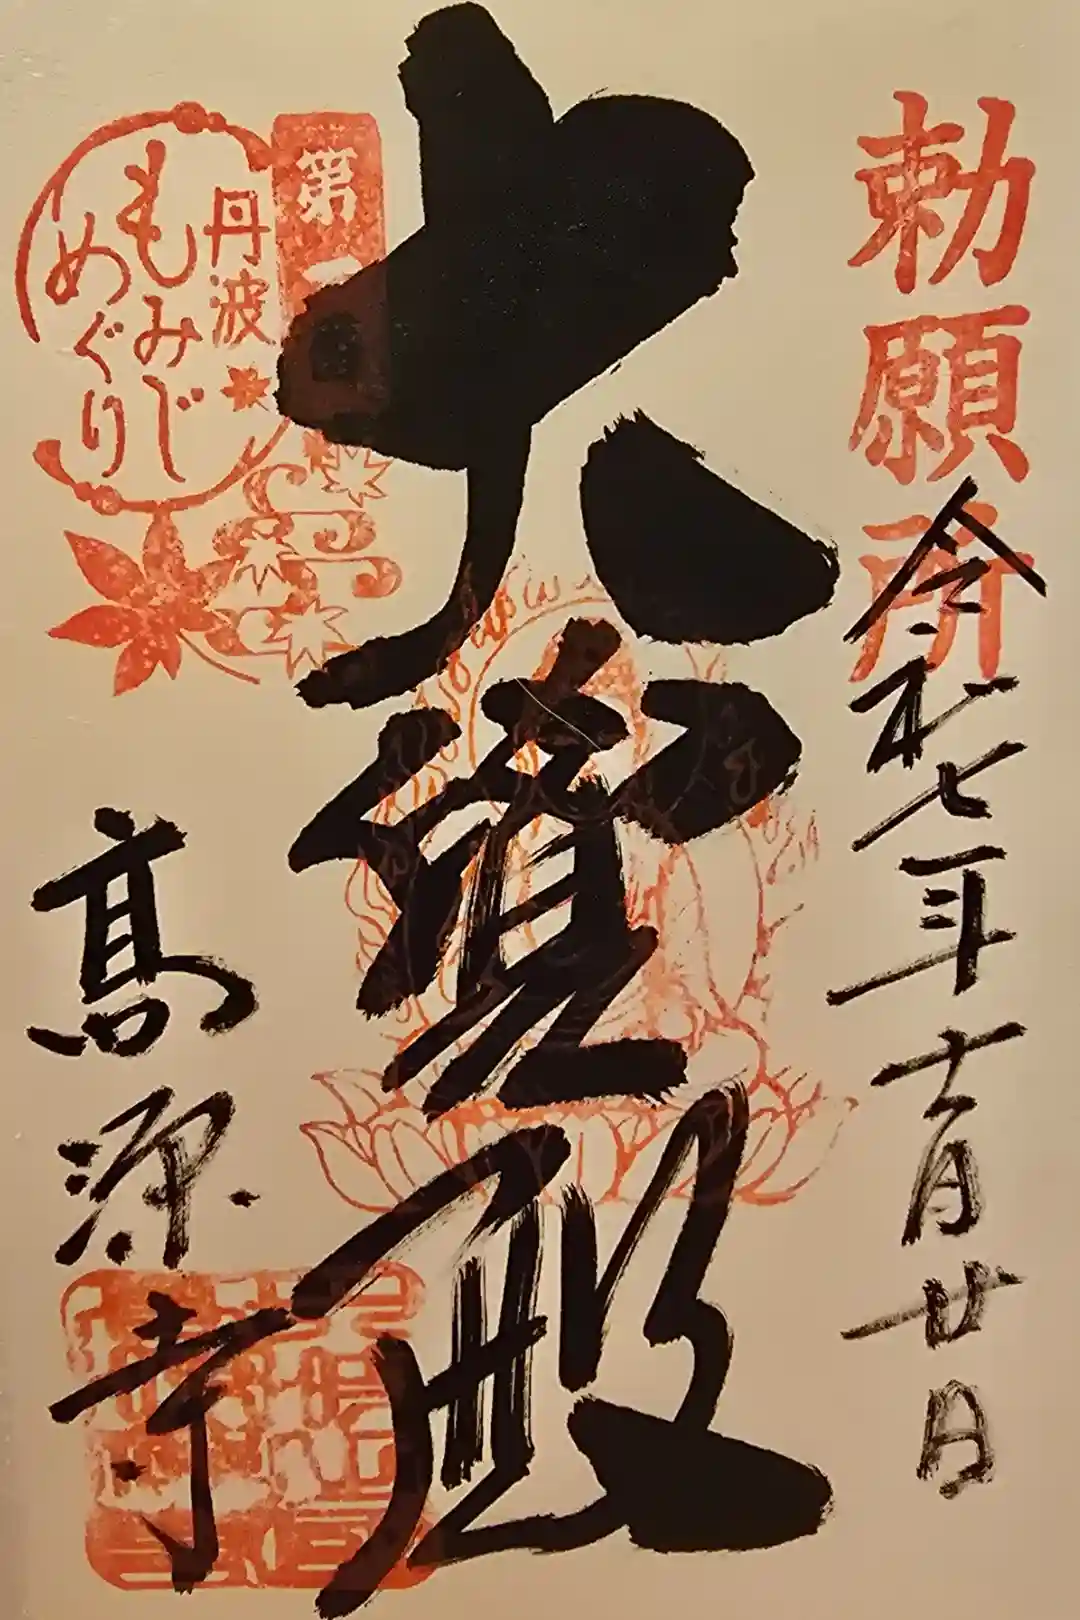 勅願所
令和七年十一月廿日
大寶殿
第一番
丹波
もみじ
めぐり
髙源寺